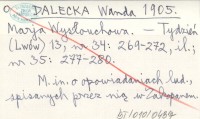 DALECKA Wanda 1905.
Marya Wysłouchowa. — Tydzień
(Lwów) 13, nr 34: 269-272, il.;
nr 35: 277-280.
M. in. o opowiadaniach lud.,
spisanych przez nią w Zakopanem.